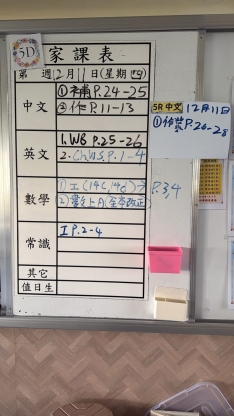 5D
家課表
第 週12月11日(星期四)
中文
①補P.24-25
②作P.11-13
5R中文 12月11日
①作業P.26-28
英文
1.WB P.25-26
2. Ch WS P.1-4
數學
①工(14C,14d) P.34
常識
I P.2-4
其它
值日生